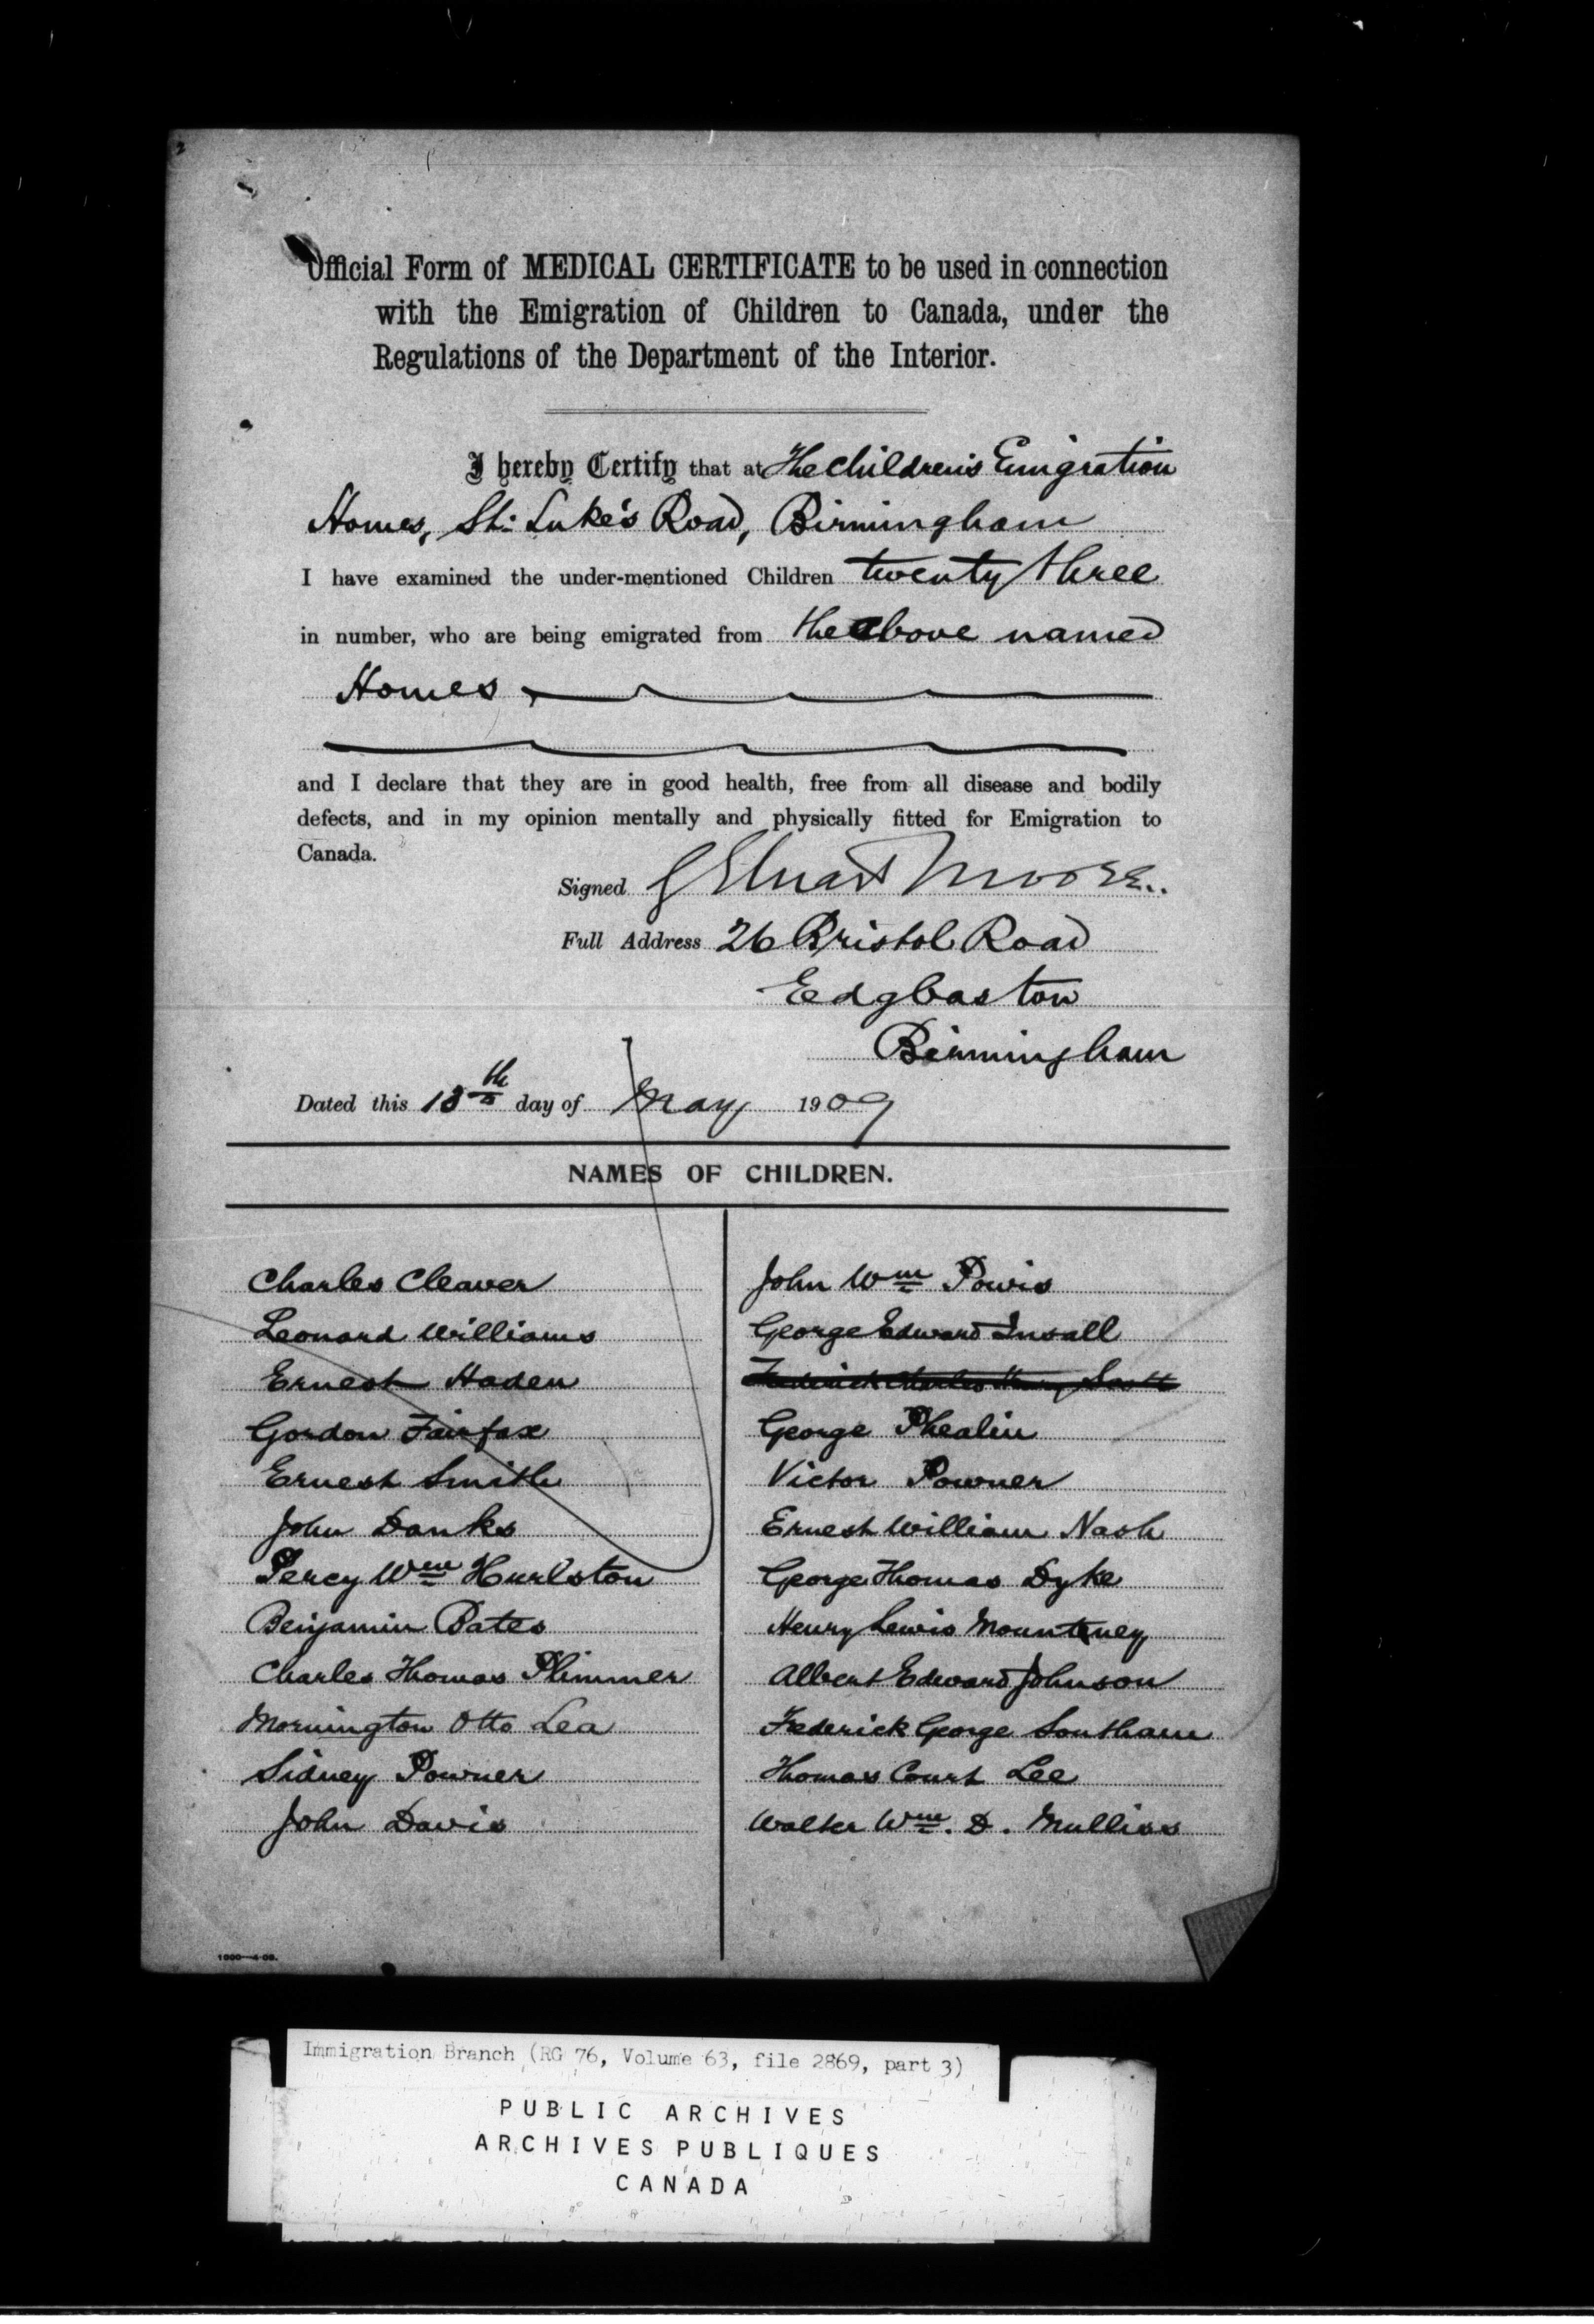 Official Form of MEDICAL CERTIFICATE to be used in connection
with the Emigration of Children to Canada, under the
Regulations of the Department of the Interior.
I hereby Certify that at The Children's Emigration
Homes, St. Luke's Road, Birmingham
I have examined the under-mentioned Children twenty three
in number, who are being emigrated from the above named
Homes
and I declare that they are in good health, free from all disease and bodily
defects, and in my opinion mentally and physically fitted for Emigration to
Canada.
Signed Stuart Moore
Full Address 26 Bristol Road
Edgbaston
Birmingham
Dated this 18th day of May 1909
NAMES OF CHILDREN.
Charles Cleaver
Leonard Williams
Ernest Haden
Gordon Fairfax
Ernest Smith
John Danks
Percy Wm Hurlston
Benjamin Bates
Charles Thomas Plimmer
Mornington Otto Lea
Sidney Powner
John Davis
John Wm Powis
George Edward Insall
Frederick Charles Henry
George Phealin
Victor Powner
Ernest William Nash
George Thomas Dyke
Henry Lewis Mounteney
Albert Edward Johnson
Federick George Southam
Thomas Court Lee
Walter Wm. D. Mulliss
1000—4-09.
Immigration Branch (RG 76, Volume 63, file 2869, part 3)
PUBLIC ARCHIVES
ARCHIVES PUBLIQUES
CANADA